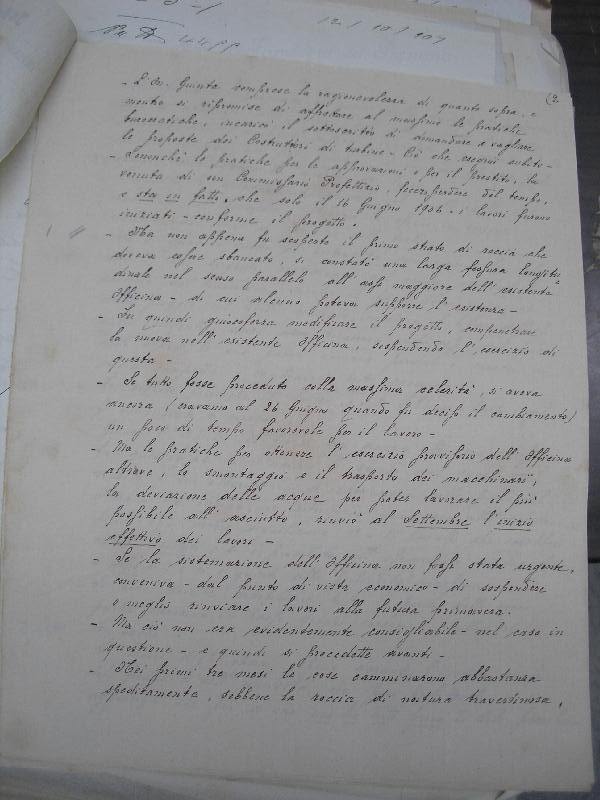 12/10/1909
44 pp
(2.
- L'On. Giunta comprese la ragionevolezza di quanto sopra, e
mentre si ripromise di affrettare al massimo le pratiche
burocratiche, incaricò il sottoscritto di domandare e vagliare
le proposte dei Costruttori di turbine - Ciò che eseguii subito -
- Senonchè le pratiche per le approvazioni e per il prestito, la
venuta di un Commissario Prefettizio, fecer perdere del tempo,
e sta in fatto, che solo il 16 Giugno 1906 i lavori furono
iniziati - conforme il progetto.
- Ma non appena fu scoperto il primo strato di roccia che
doveva essere stancato, si constatò una larga fessura longitu
dinale nel senso parallelo all'asse maggiore dell'esistente
Officina - di cui alcuno poteva supporre l'esistenza -
- Fu quindi giocoforza modificare il progetto, compenetrare
la nuova nell'esistente Officina, sospendendo l'esercizio di
questa -
- Se tutto fosse proceduto colla massima celerità, si aveva
ancora (eravamo al 26 Giugno quando fu deciso il cambiamento)
un poco di tempo favorevole per il lavoro -
- Ma le pratiche per ottenere l'esercizio provvisorio dell'Officina
altrove, lo smontaggio e il trasporto dei macchinari,
la deviazione delle acque per poter lavorare il più
possibile all'asciutto, rinviò al Settembre l'inizio
effettivo dei lavori -
- Se la sistemazione dell'Officina non fosse stata urgente,
conveniva - dal punto di vista economico - di sospendere
o meglio rinviare i lavori alla futura primavera.
- Ma ciò non era evidentemente consigliabile - nel caso in
questione - e quindi si procedette avanti -
- Nei primi tre mesi le cose camminarono abbastanza
speditamente, sebbene la roccia di natura travertinosa,